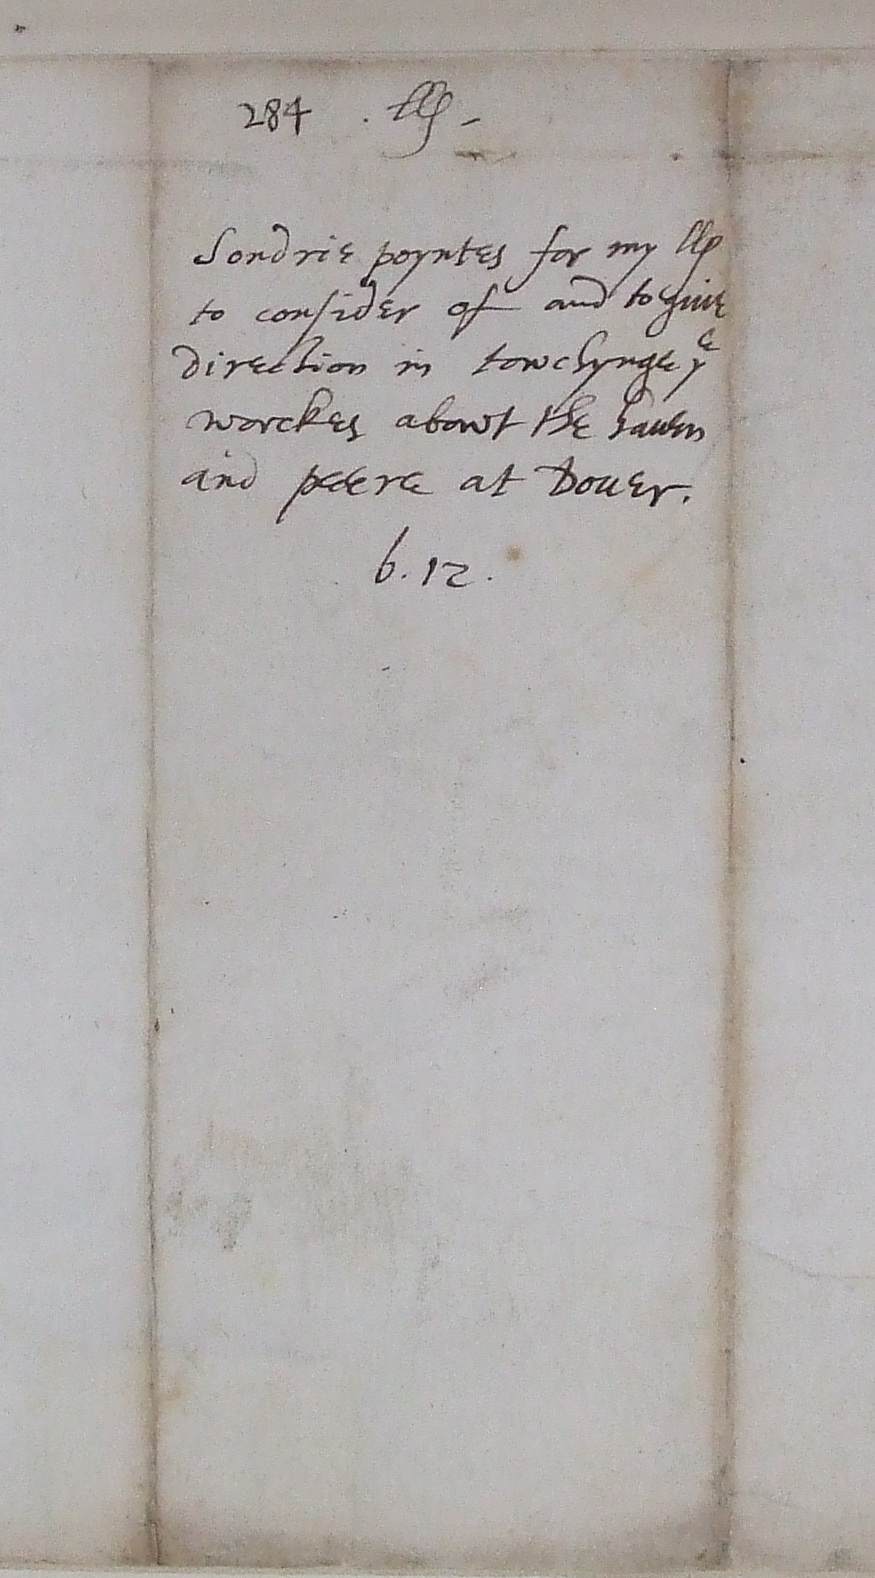 284 . llp -
Sondrie poyntes for my llp
to consider of and to giue
direction in towchynge yᵉ
worckes abowt the hauen
and peere at Douer.
6. 12.